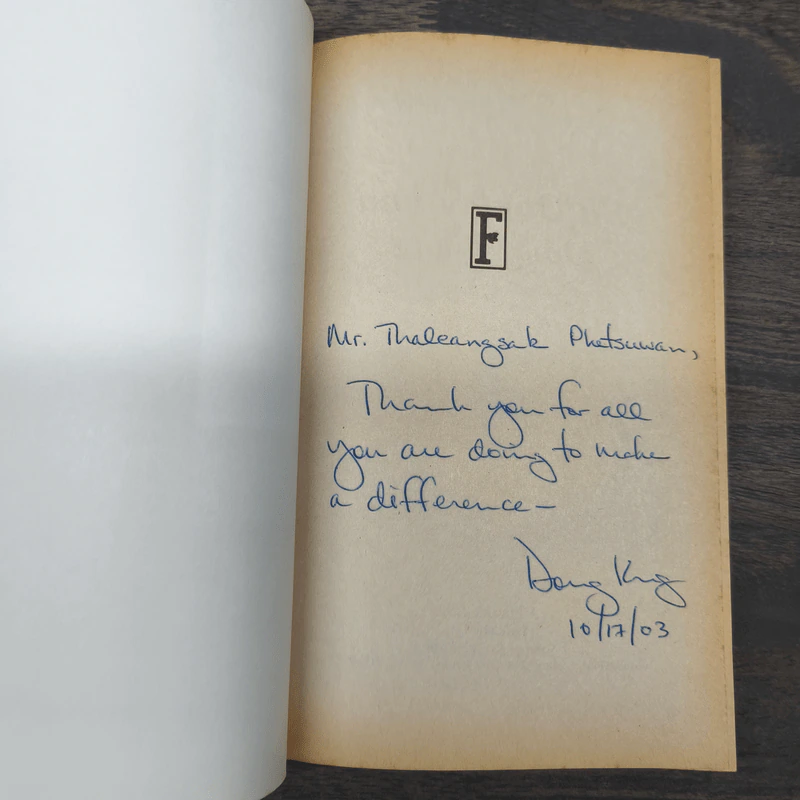 F
Mr. Thaleangsak Phetsuwan,
Thank you for all
you are doing to make
a difference—
Doug King
10/17/03